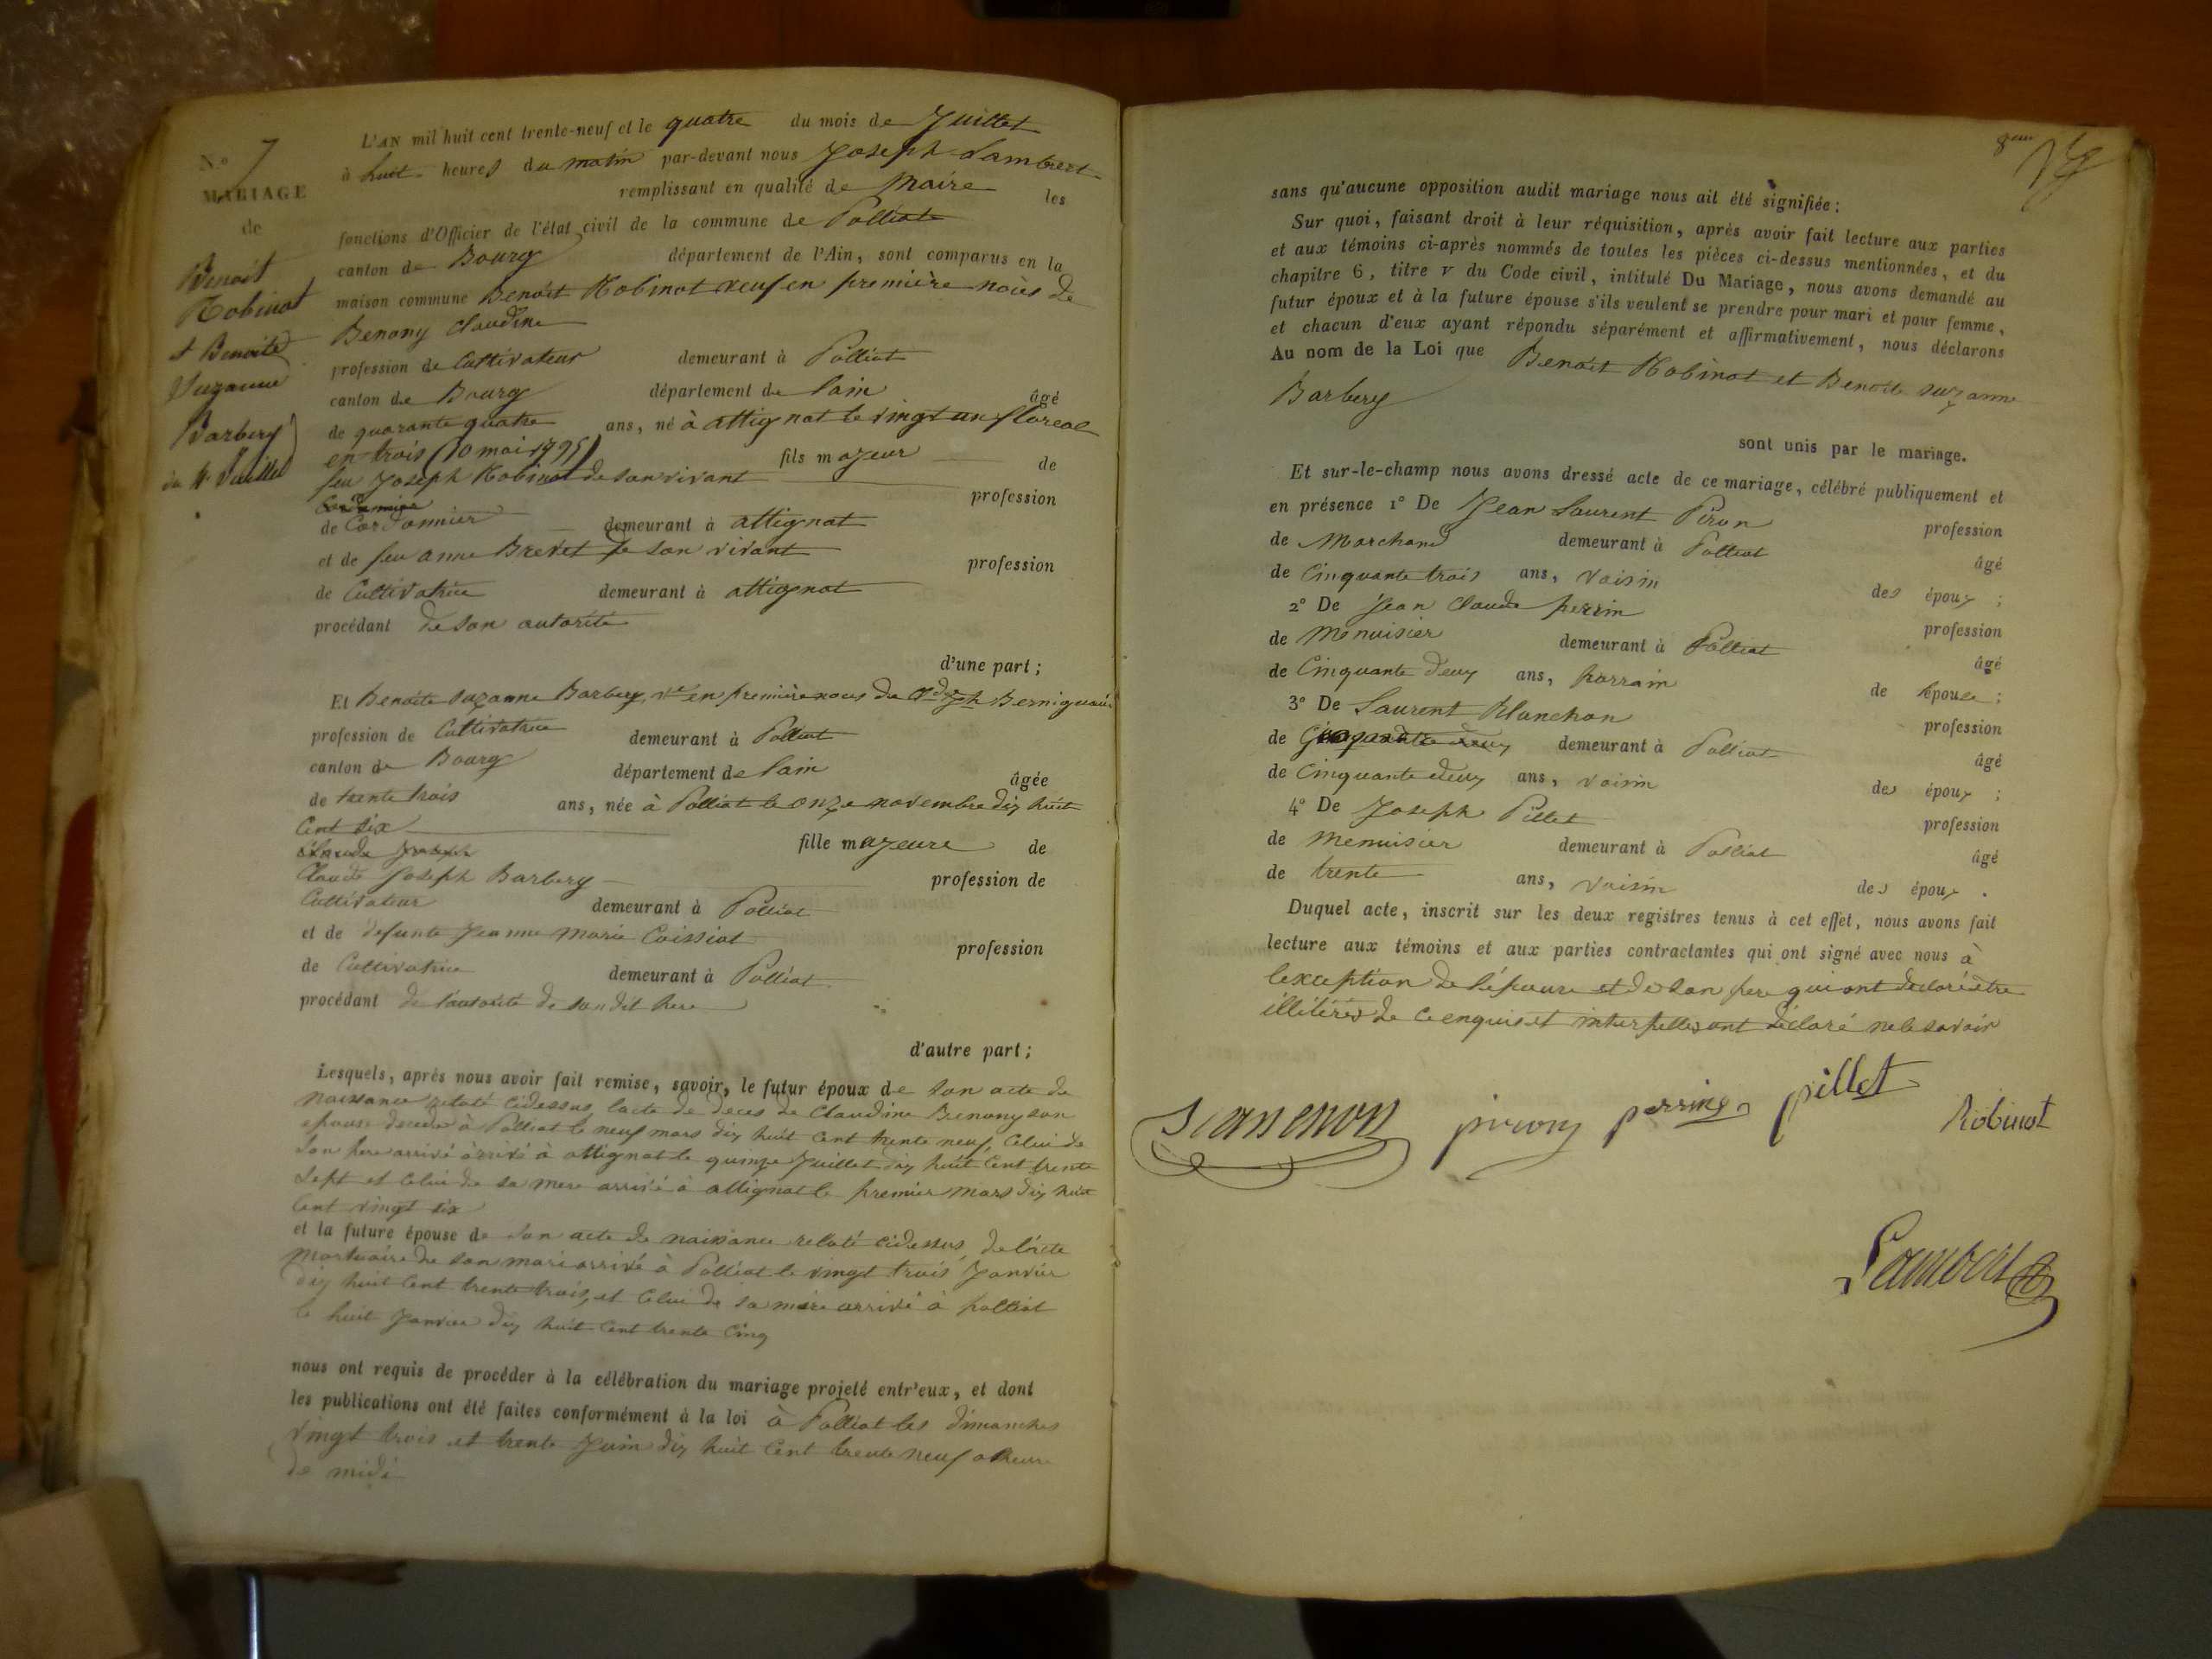 N.° 7
MARIAGE
de
Benoit
Robinot
et Benoite
Suzanne
Barbery
du 4 Juillet
L'AN mil huit cent trente-neuf et le quatre du mois de Juillet
à huit heures du matin par-devant nous Joseph Lambert
remplissant en qualité de Maire les
fonctions d'Officier de l'état civil de la commune de Polliat
canton de Bourg département de l'Ain, sont comparus en la
maison commune Benoit Robinot veuf en première noces de
Benony Claudine
profession de Cultivateur demeurant à Polliat
canton de Bourg département de lain âgé
de quarante quatre ans, né à attignat le vingt un floreal
en trois (10 mai 1795) fils majeur de
feu Joseph Robinot de son vivant profession
Cordonnier
de Cordonnier demeurant à attignat
et de feu anne Brevet de son vivant profession
de Cultivatrice demeurant à attignat
procédant de son autorité
d'une part ;
Et Benoite Suzanne Barbery, ve en première noces de Joseph
profession de Cultivatrice demeurant à Polliat
canton de Bourg département de lain âgée
de trente trois ans, née à Polliat le onze novembre dix huit
Cent six fille majeure de
Claude Joseph
Claude Joseph Barbery profession de
Cultivateur demeurant à Polliat
et de defunte Jeanne Marie Coissiat profession
de Cultivatrice demeurant à Polliat
procédant de l'autorité de son dit Pere
d'autre part ;
Lesquels, après nous avoir fait remise, savoir, le futur époux de son acte de
naissance relaté cidessus, lacte de deces de Claudine Benony son
epouse decedée à Polliat le neuf mars dix huit Cent trente neuf, Celui de
Son Pere arrivé à attignat le quinze Juillet dix huit Cent trente
Sept et Celui de sa mere arrivé à attignat le premier Mars dix huit
Cent vingt six
et la future épouse de Son acte de naissance relaté cidessus, de l'acte
mortuaire de son mari arrivé à Polliat le vingt trois Janvier
dix huit Cent trente trois, et Celui de sa mère arrivé à polliat
le huit Janvier dix huit Cent trente Cinq
nous ont requis de procéder à la célébration du mariage projeté entr'eux, et dont
les publications ont été faites conformément à la loi à Polliat les dimanches
vingt trois et trente Juin dix huit Cent trente neuf a heure
de midi
sans qu'aucune opposition audit mariage nous ait été signifiée ;
Sur quoi, faisant droit à leur réquisition, après avoir fait lecture aux parties
et aux témoins ci-après nommés de toutes les pièces ci-dessus mentionnées, et du
chapitre 6, titre v du Code civil, intitulé Du Mariage, nous avons demandé au
futur époux et à la future épouse s'ils veulent se prendre pour mari et pour femme,
et chacun d'eux ayant répondu séparément et affirmativement, nous déclarons
Au nom de la Loi que Benoit Robinot et Benoite suzanne
Barbery
sont unis par le mariage.
Et sur-le-champ nous avons dressé acte de ce mariage, célébré publiquement et
en présence 1° De Jean Laurent Piron profession
de Marchand demeurant à Polliat âgé
de Cinquante trois ans, voisin des époux ;
2° De Jean Claude perrin profession
de Menuisier demeurant à Polliat âgé
de Cinquante deux ans, parrain de lépouse ;
3° De Laurent Planchon profession
de demeurant à Polliat âgé
de Cinquante deux ans, voisin des époux ;
4° De Joseph Pillet profession
de Menuisier demeurant à Polliat âgé
de trente ans, voisin des époux .
Duquel acte, inscrit sur les deux registres tenus à cet effet, nous avons fait
lecture aux témoins et aux parties contractantes qui ont signé avec nous à
lexception de lépouse et de son pere qui ont declaré être
illitérés de ce enquis et interpellés ont déclaré ne le savoir
pirony perrin pillet Robinot
Lambert